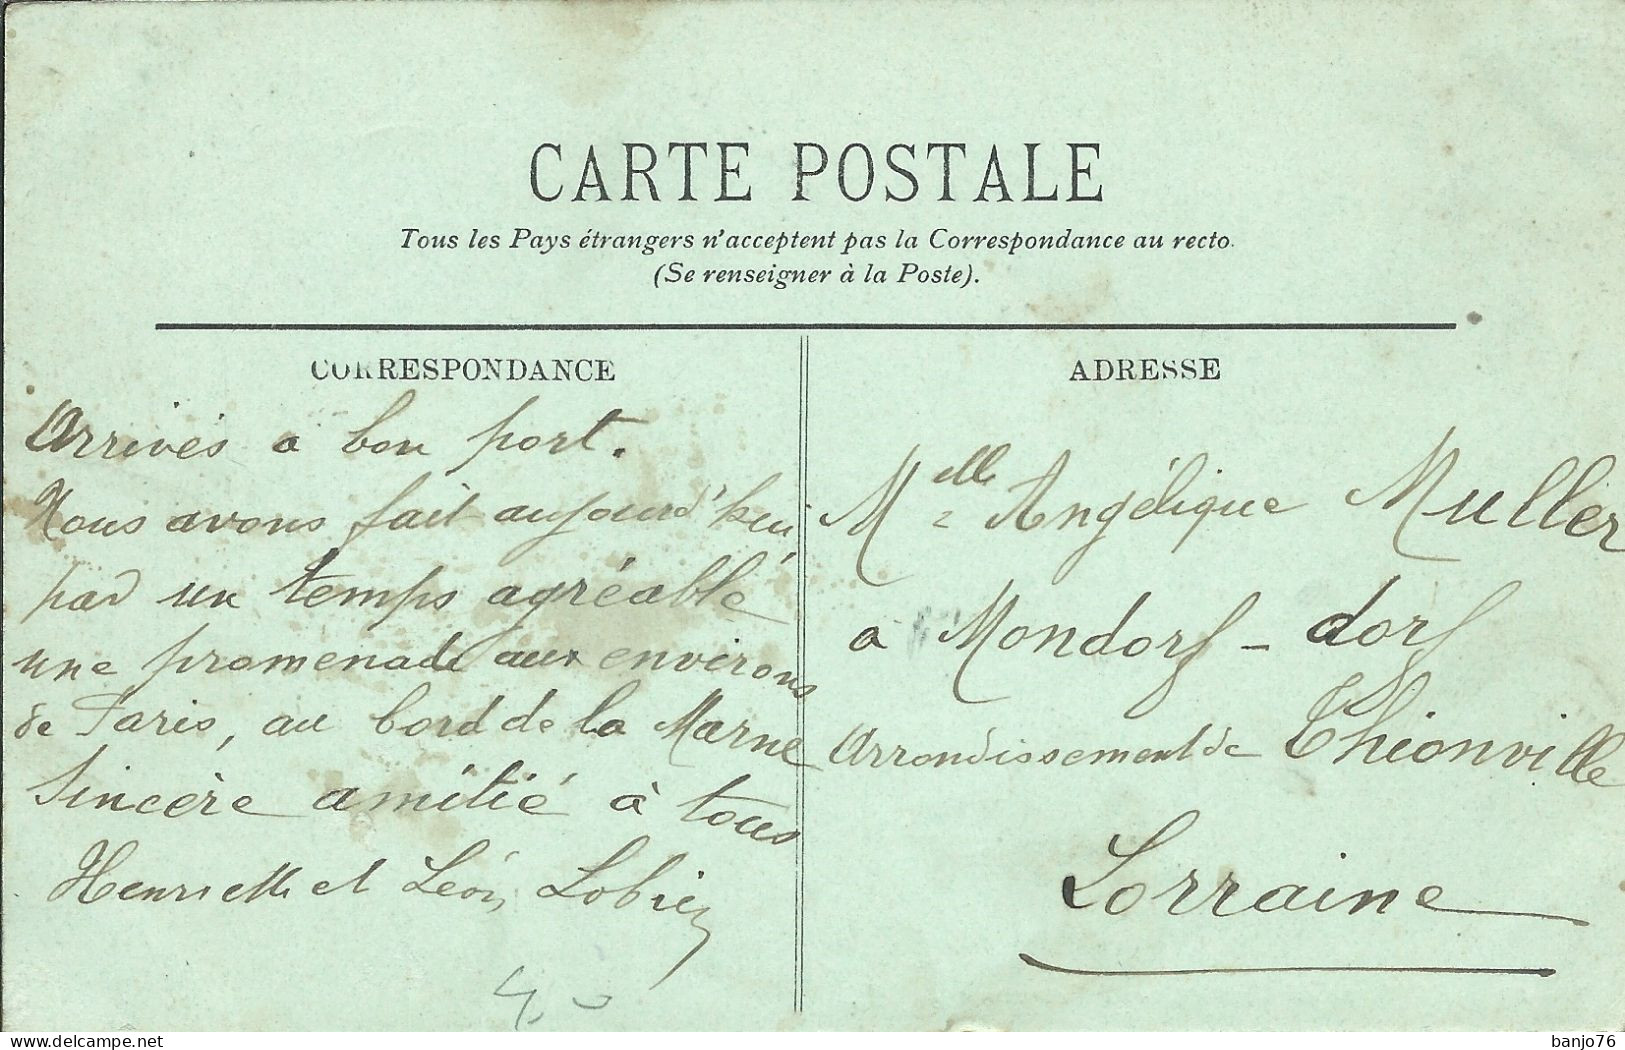 CARTE POSTALE
Tous les Pays étrangers n'acceptent pas la Correspondance au recto.
(Se renseigner à la Poste).
CORRESPONDANCE
Arrivés a bon port.
Nous avons fait aujourd'hui,
par un temps agréable
une promenade aux environs
de Paris, au bord de la Marne
Sincère amitié à tous
Henriette et Léon
ADRESSE
Melle Angélique Muller
a Mondorf-dorf
Arrondissement de Thionville
Lorraine
delcampe.net
banjo76